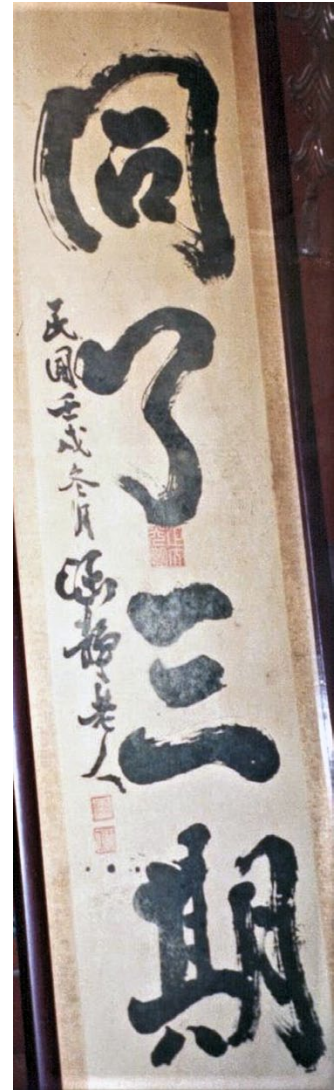 同了三期
民國壬戌冬月 涵靜老人